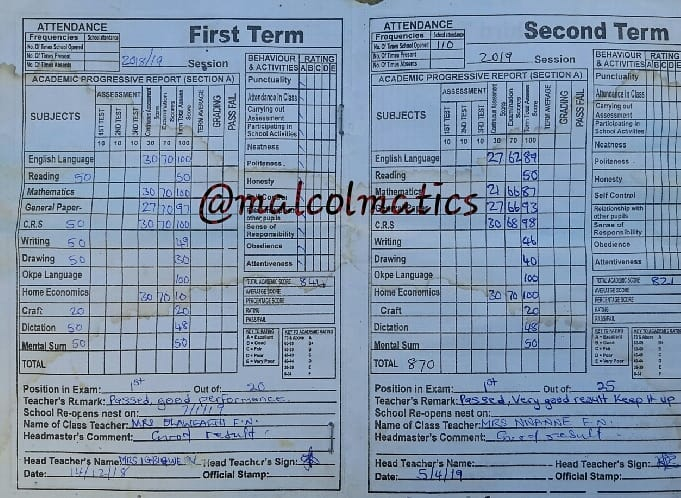 First Term
ATTENDANCE
Frequencies School attendance
No. Of Times School Opened
No. Of Times Present
No. Of Times Absents
2018/19 Session
BEHAVIOUR & ACTIVITIES RATING
A B C D E
ACADEMIC PROGRESSIVE REPORT (SECTION A)
SUBJECTS
ASSESSMENT
1ST TEST 2ND TEST 3RD TEST Examination Scores TERM AVERAGE GRADING PASS/FAIL
10 10 10 30 70 100
English Language 30 70 100
Reading 50 50
Mathematics 30 70 100
General Paper 27 70 97
C.R.S 50 30 70 100
Writing 50 49
Drawing 50 30
Okpe Language 100
Home Economics 30 70 10
Craft 20 20
Dictation 50 48
Mental Sum 50 50
TOTAL
Punctuality
Attendance in Class
Carrying out Assessment
Participating in School Activities
Neatness
Politeness
Honesty
Sense of Responsibility
Obedience
Attentiveness
TOTAL ACADEMIC SCORE 844
AVERAGE SCORE
PERCENTAGE SCORE
RATING
PASS/FAIL
KEY TO RATING
A = Excellent
B = Good
C = Fair
D = Poor
E = Very Poor
KEY TO ACADEMIC RATING
Position in Exam: 1st Out of: 20
Teacher's Remark: Passed, good performance.
School Re-opens nest on: 7/1/19
Name of Class Teacher: MRS F.N.
Headmaster's Comment: Good result.
Head Teacher's Name: MRS Head Teacher's Sign:
Date: 14/12/18 Official Stamp:
Second Term
ATTENDANCE
Frequencies School attendance
No. Of Times School Opened 110
No. Of Times Present
No. Of Times Absents
2019 Session
BEHAVIOUR & ACTIVITIES RATING
A B C D E
ACADEMIC PROGRESSIVE REPORT (SECTION A)
SUBJECTS
ASSESSMENT
1ST TEST 2ND TEST 3RD TEST Examination Scores TERM AVERAGE GRADING PASS FAIL
10 10 10 30 70 100
English Language 27 62 89
Reading 50
Mathematics 21 66 87
General Paper 27 66 93
C.R.S 30 68 98
Writing 46
Drawing 40
Okpe Language 100
Home Economics 30 70 100
Craft 20
Dictation 48
Mental Sum 50
TOTAL 870
Punctuality
Attendance in Class
Carrying out Assessment
Participating in School Activities
Neatness
Politeness
Honesty
Self Control
Relationship with other pupils
Sense of Responsibility
Obedience
Attentiveness
TOTAL ACADEMIC SCORE 821
AVERAGE SCORE
PERCENTAGE SCORE
RATING
PASS/FAIL
KEY TO RATING
A = Excellent
B = Good
C = Fair
D = Poor
E = Very Poor
KEY TO ACADEMIC RATING
Position in Exam: 1st Out of: 25
Teacher's Remark: Passed, Very good result Keep it up
School Re-opens nest on:
Name of Class Teacher: MRS NWANNE F.N.
Headmaster's Comment: Good result.
Head Teacher's Name: Head Teacher's Sign:
Date: 5/4/19 Official Stamp:
@malcolmatics